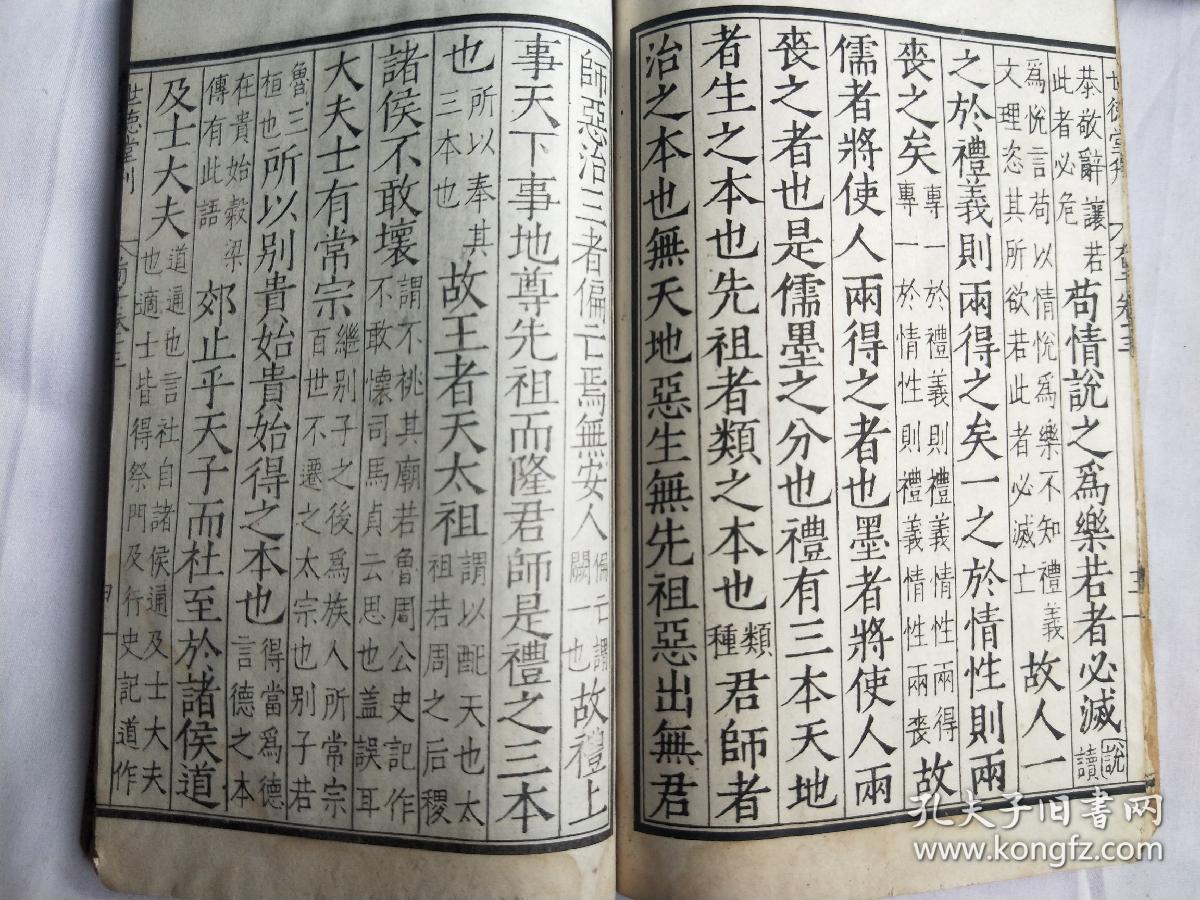 恭敬辭讓若
此者必危
苟情說之爲樂若者必滅
說讀
爲悅言苟以情悅爲樂不知禮義
文理恣其所欲若此者必滅亡
故人一
之於禮義則兩得之矣一之於情性則兩
喪之矣
專一於禮義則禮義情性兩得
專一於情性則禮義情性兩喪
故
儒者將使人兩得之者也墨者將使人兩
喪之者也是儒墨之分也禮有三本天地
者生之本也先祖者類之本也
類
種
君師者
治之本也無天地惡生無先祖惡出無君
師惡治三者偏亡焉無安人
偏亡謂
闕一也
故禮上
事天下事地尊先祖而隆君師是禮之三本
也
所以奉其
三本也
故王者天太祖
謂以配天也太
祖若周之后稷
諸侯不敢壞
謂不祧其廟若魯周公史記作
不敢懷司馬貞云思也蓋誤耳
大夫士有常宗
繼别子之後爲族人所常宗
百世不遷之太宗也别子若
魯三
桓也
所以别貴始貴始得之本也
得當爲德
言德之本
在貴始穀梁
傳有此語
郊止乎天子而社至於諸侯道
及士大夫
道通也言社自諸侯通及士大夫
也適士皆得祭門及行史記道作
世德堂刊
四
孔夫子旧书网
www.kongfz.com